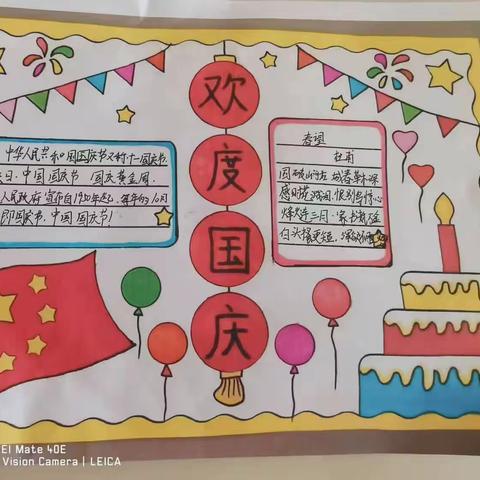 欢
度
国
庆
中华人民共和国国庆节又称十一国庆节
日、中国国庆节 国庆黄金周。
人民政府宣布自1950年起，每年的10月
即国庆节，中国国庆节！
春望
杜甫
国破山河在 城春草木深
感时花溅泪，恨别鸟惊心
烽火连三月，家书抵万金
白头搔更短，浑欲不
EI Mate 40E
Vision Camera | LEICA